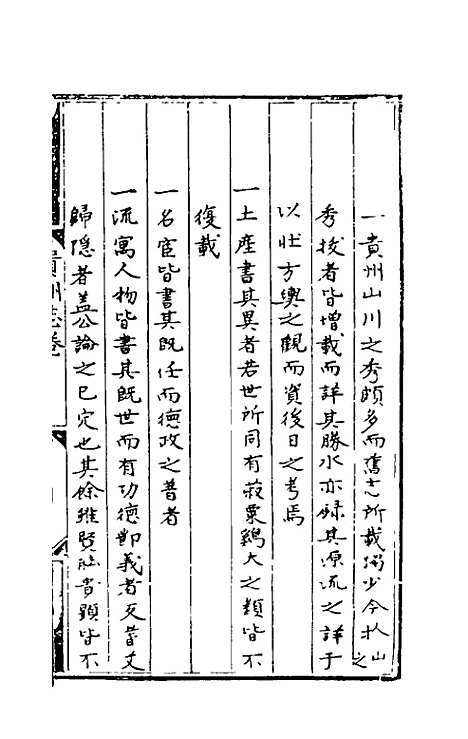 一貴州山川之秀頗多而舊志所載獨少今於山之
秀拔者皆增載而詳其勝水亦録其源流之詳于
以壯方輿之觀而資後日之考焉
一土產書其異者若世所同有菽粟鷄犬之類皆不
復載
一名宦皆書其既任而德政之著者
一流寓人物皆書其既世而有功德節義者及昔文
歸隱者盖公論之已定也其餘雖賢能貴顯皆不
貴州志卷